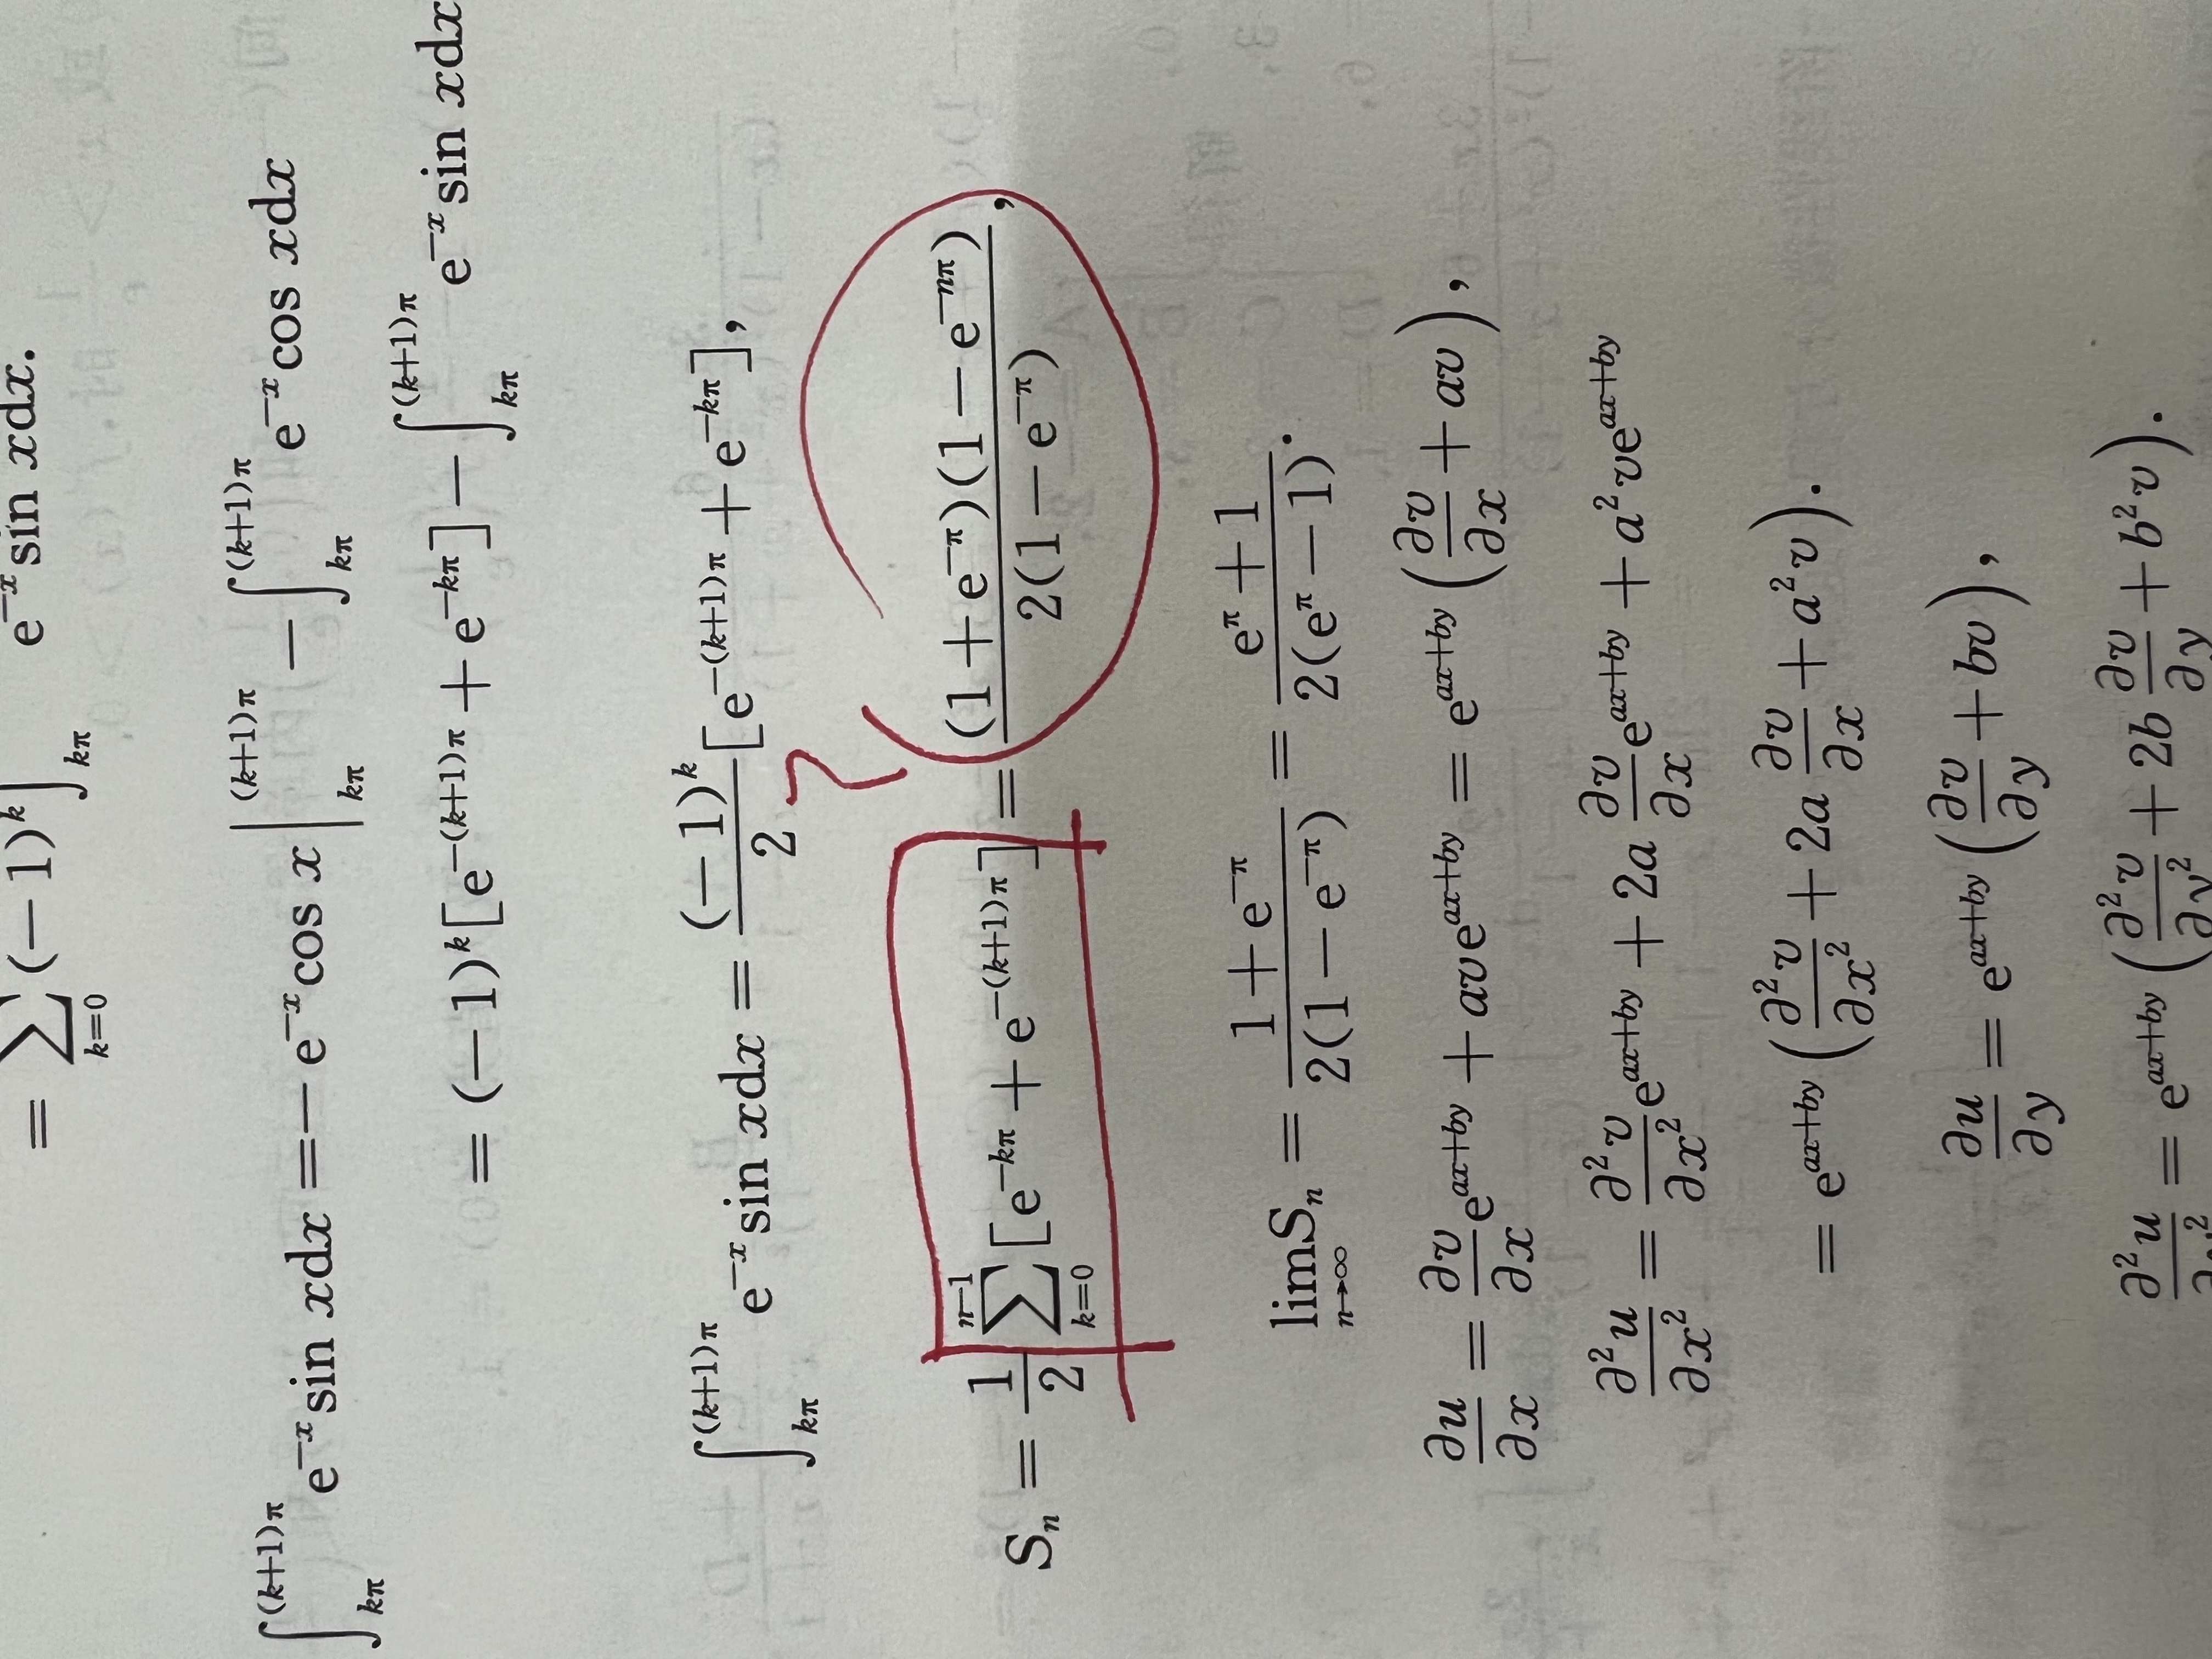 = ∑_{k=0} (−1)^k ∫_{kπ} e^{−x} sin xdx.
∫_{kπ}^{(k+1)π} e^{−x} sin xdx = −e^{−x} cos x |_{kπ}^{(k+1)π} − ∫_{kπ}^{(k+1)π} e^{−x} cos xdx
= (−1)^k [e^{−(k+1)π} + e^{−kπ}] − ∫_{kπ}^{(k+1)π} e^{−x} sin xdx
∫_{kπ}^{(k+1)π} e^{−x} sin xdx = \frac{(−1)^k}{2} [e^{−(k+1)π} + e^{−kπ}],
S_n = \frac{1}{2} ∑_{k=0}^{n−1} [e^{−kπ} + e^{−(k+1)π}] = \frac{(1+e^{−π})(1−e^{−nπ})}{2(1−e^{−π})},
\lim_{n→∞} S_n = \frac{1+e^{−π}}{2(1−e^{−π})} = \frac{e^π+1}{2(e^π−1)}.
\frac{∂u}{∂x} = \frac{∂v}{∂x} e^{ax+by} + ave^{ax+by} = e^{ax+by} (\frac{∂v}{∂x} + av),
\frac{∂²u}{∂x²} = \frac{∂²v}{∂x²} e^{ax+by} + 2a \frac{∂v}{∂x} e^{ax+by} + a²ve^{ax+by}
= e^{ax+by} (\frac{∂²v}{∂x²} + 2a \frac{∂v}{∂x} + a²v).
\frac{∂u}{∂y} = e^{ax+by} (\frac{∂v}{∂y} + bv),
\frac{∂²u}{∂y²} = e^{ax+by} (\frac{∂²v}{∂y²} + 2b \frac{∂v}{∂y} + b²v).